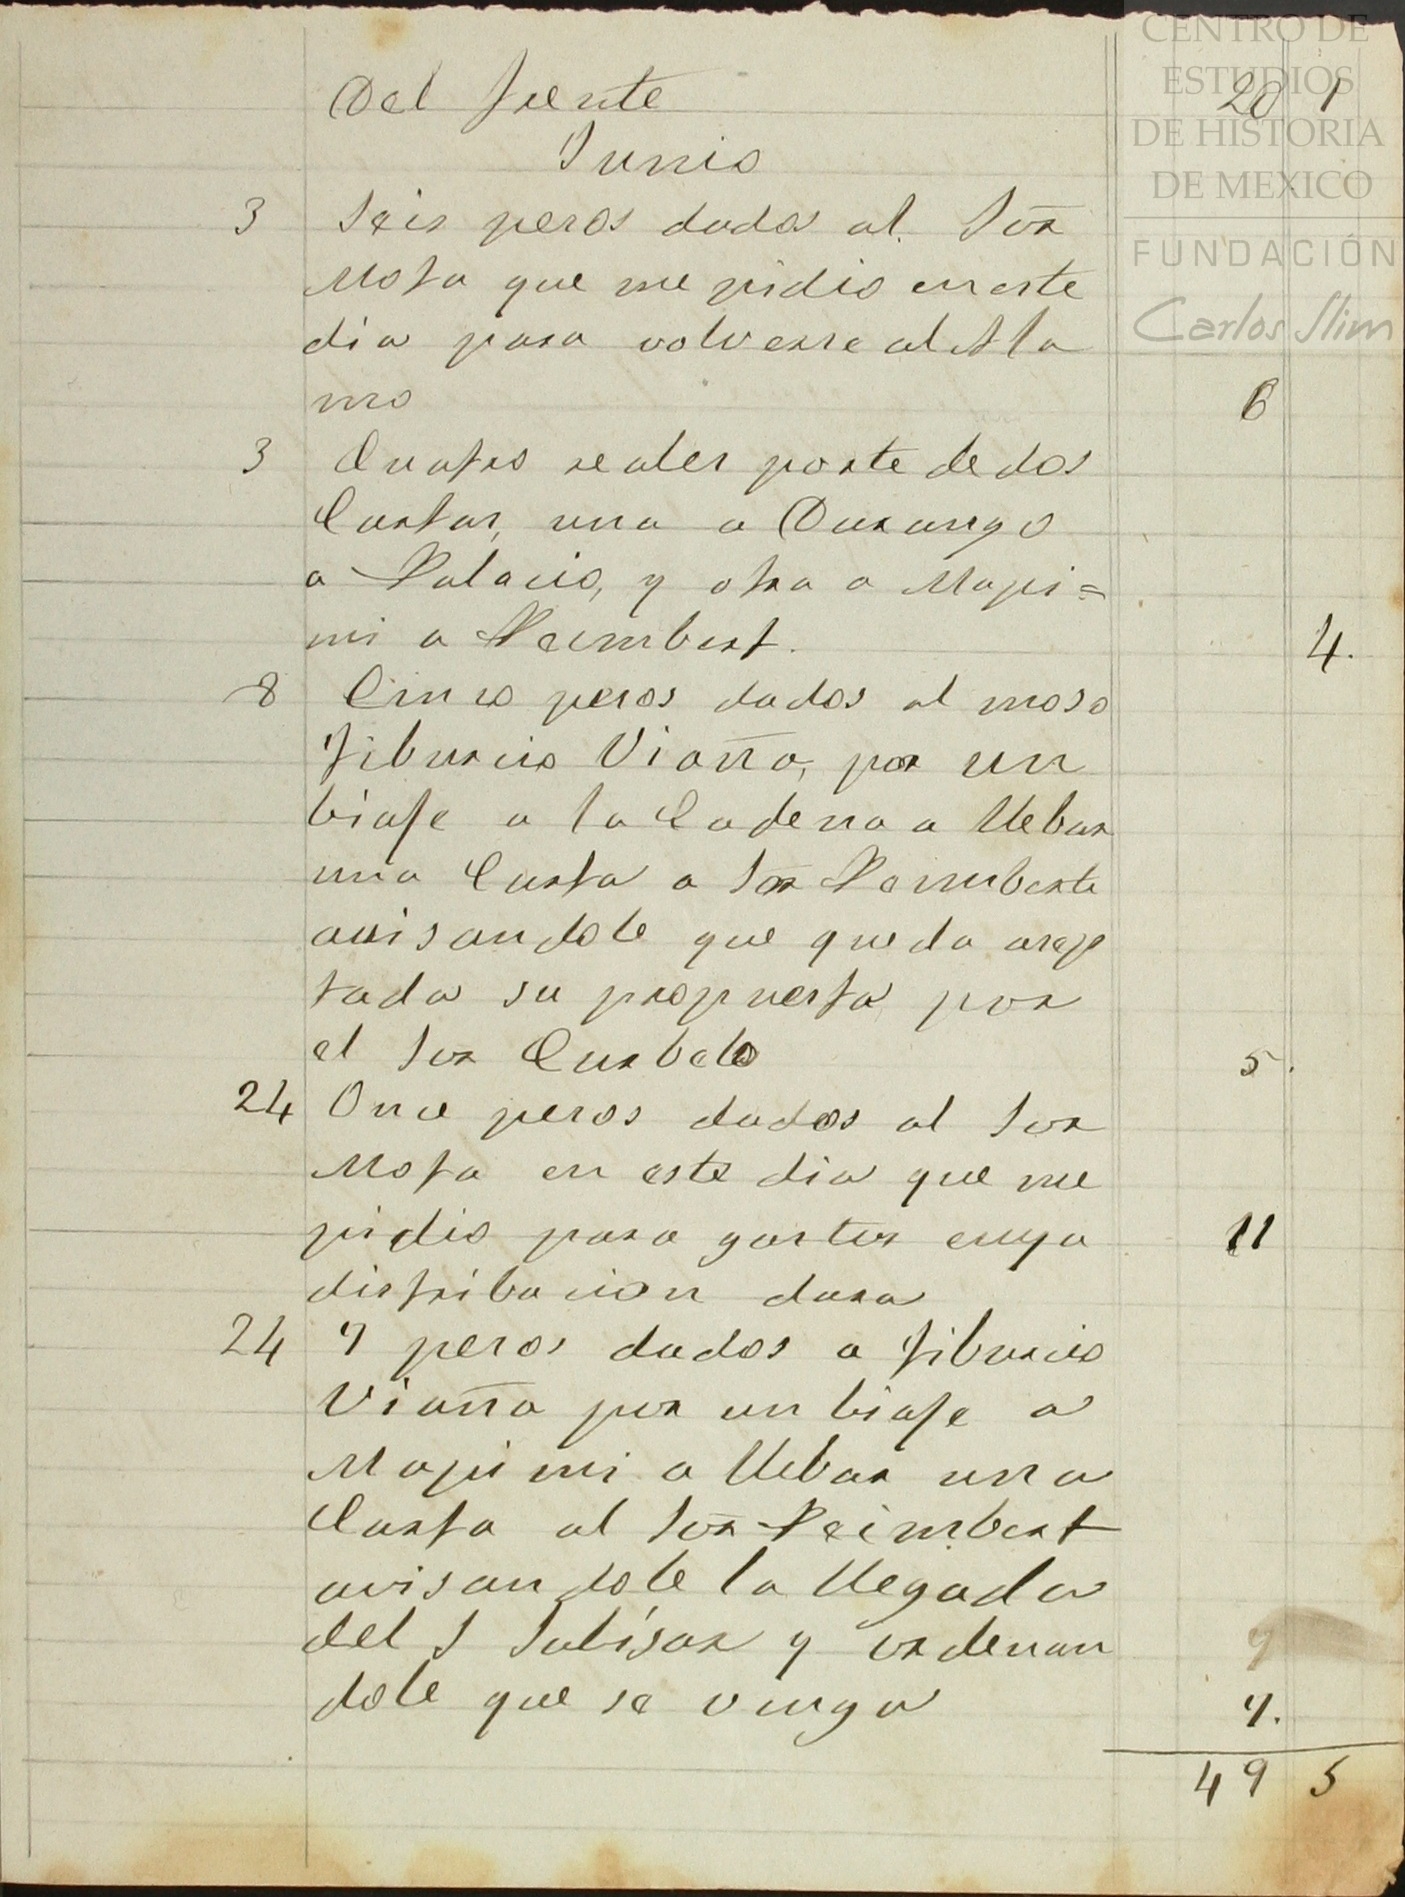 Del frente 20 1
Junio
3 Seis pesos dados al Sōr
Mota que me pidio en este
dia para volverse al Ala
mo 6
3 Cuatro reales porte de dos
Cartas, una a Durango
a Palacio, y otra a Mapi=
mi a Peimbert. 4.
8 Cinco pesos dados al moso
Tiburcio Viaña, por un
biaje a la Cadena a llebar
una Carta a Sōr Peimberte
avisandole que queda asep
tada su propuesta por
el Sor Curbelo 5.
24 Once pesos dados al Sor
Mota en este dia que me
pidio para gastos cuya 11
distribucion dara
24 7 pesos dados a Tiburcio
Viaña por un biaje a
Mapimi a llebar una
Carta al Sōr Peimbert
avisandole la llegada
del S Salisar y ordenan 7
dole que se venga 7.
49 5
CENTRO DE
ESTUDIOS
DE HISTORIA
DE MEXICO
FUNDACIÓN
Carlos Slim